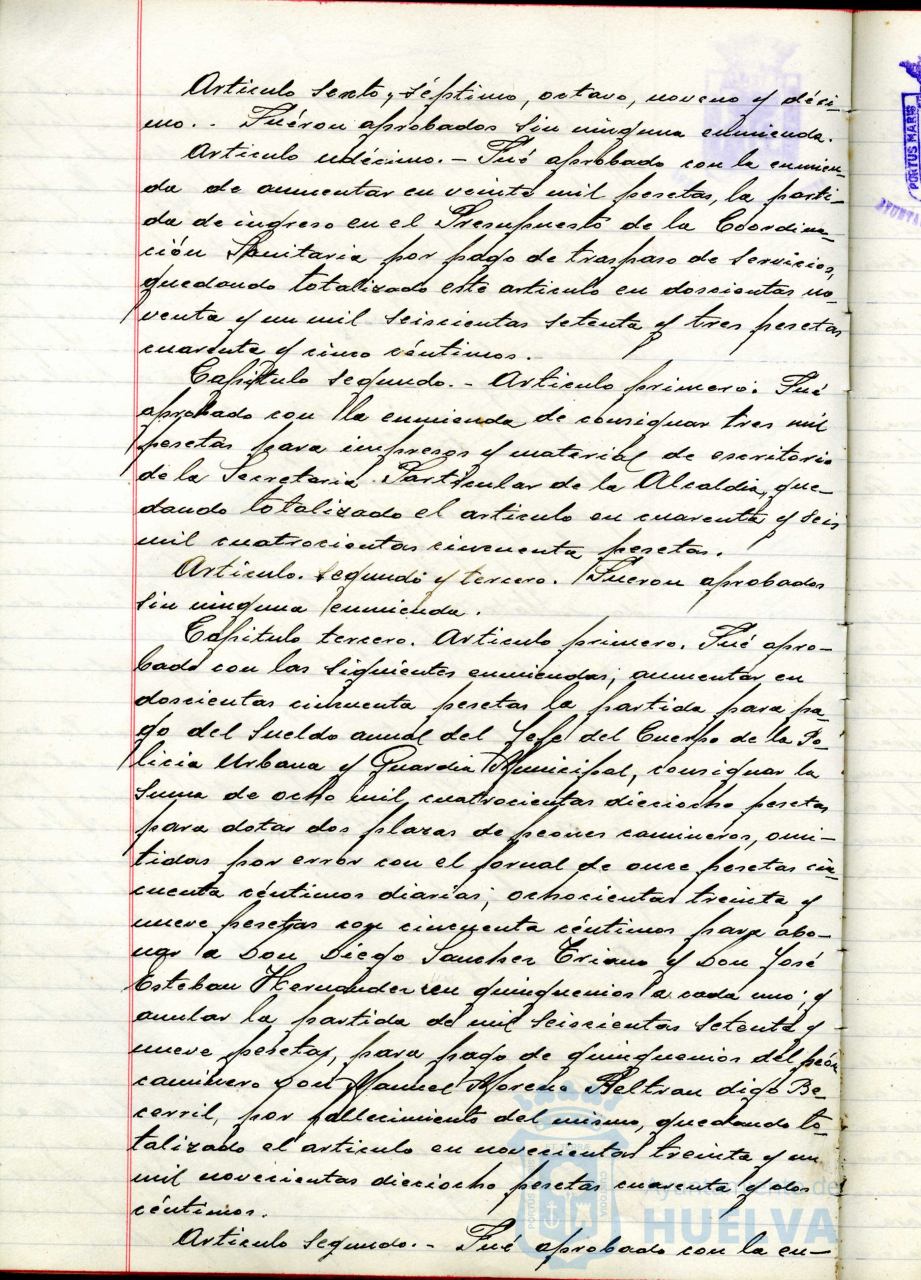 Articulo sexto, séptimo, octavo, noveno y déci-
mo. - Fuéron aprobados sin ninguna enmienda.
Articulo udécimo. - Fué aprobado con la enmien-
da de aumentar en veinte mil pesetas, la parti-
da de ingreso en el Presupuesto de la Coordina-
ción Sanitaria por pago de traspaso de servicios,
quedando totalizado este articulo en doscientas no-
venta y un mil seiscientas setenta y tres pesetas
cuarenta y cinco céntimos.
Capitulo segundo. - Articulo primero: Fué
aprobado con la enmienda de consignar tres mil
pesetas para impresos y material de escritorio
de la Secretaria Particular de la Alcaldia, que-
dando totalizado el articulo en cuarenta y seis
mil cuatrocientas cincuenta pesetas.
Articulo. segundo y tercero. Fueron aprobados
sin ninguna enmienda.
Capitulo tercero. Articulo primero. Fué apro-
bado con las siguientes enmiendas; aumentar en
doscientas cincuenta pesetas la partida para pa-
go del sueldo anual del Jefe del Cuerpo de la Po-
licia Urbana y Guardia Municipal, consignar la
suma de ocho mil cuatrocientas dieciocho pesetas
para dotar dos plazas de peones camineros, omi-
tidas por error con el jornal de once pesetas cin-
cuenta céntimos diarias; ochocientas treinta y
nueve pesetas con cincuenta céntimos para abo-
nar a Don Diego Sanchez Triano y Don José
Esteban Hernandez en quinquenios a cada uno; y
anular la partida de mil seiscientas setenta y
nueve pesetas, para pago de quinquenios del peón
caminero Don Manuel Moreno Beltran digo Be-
cerril, por fallecimiento del mismo, quedando to-
talizado el articulo en novecientas treinta y un
mil novecientas dieciocho pesetas cuarenta y dos
céntimos.
Articulo segundo. - Fué aprobado con la en-
PORTUS MARIS
Ayuntamiento de
HUELVA